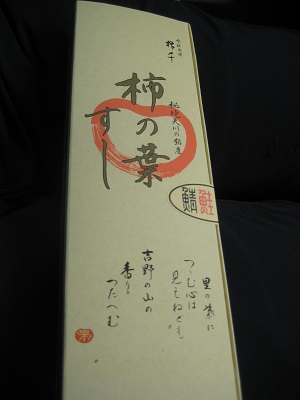 柿の葉
すし
鯖
鮭
里の葉に
つゝむ心は
見えねども
吉野の山の
香り
つたへむ